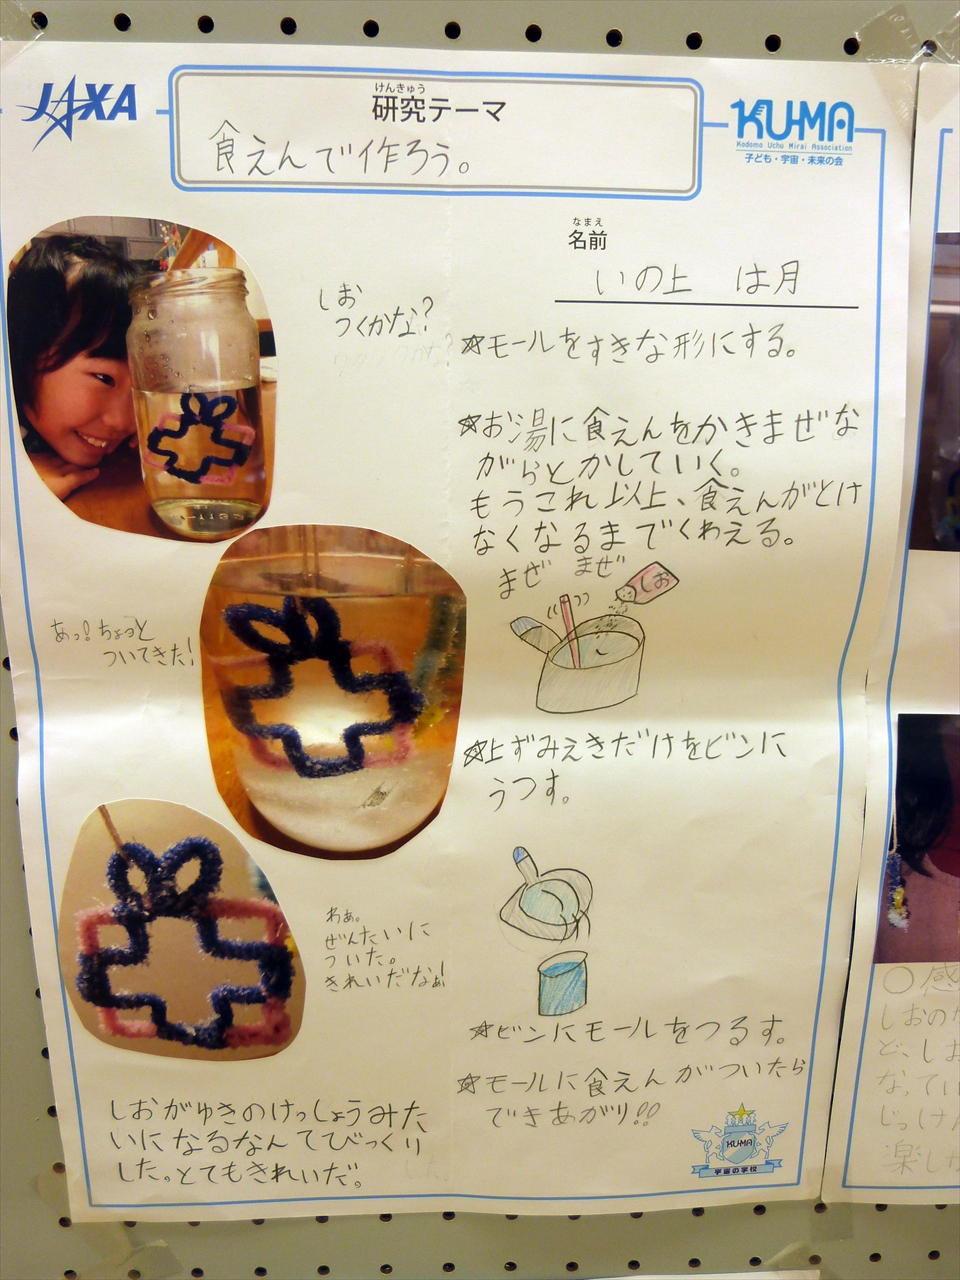 JAXA
けんきゅう
研究テーマ
食えんで作ろう。
KU-MA
Kodomo Uchu Mirai Association
子ども・宇宙・未来の会
なまえ
名前
いの上 は月
しお
つくかな?
☆モールをすきな形にする。
☆お湯に食えんをかきまぜな
がらとかしていく。
もうこれ以上、食えんがとけ
なくなるまでくわえる。
まぜ まぜ
しお
あっ!ちょっと
ついてきた!
☆上ずみえきだけをビンに
うつす。
わぁ。
ぜんたいに
ついた。
きれいだなぁ!
☆ビンにモールをつるす。
☆モールに食えんがついたら
できあがり!!
しおがゆきのけっしょうみた
いになるなんてびっくり
した。とてもきれいだ。
KU-MA
宇宙の学校
○感
しおの
ど、しお
なってい
じっけん
楽しか